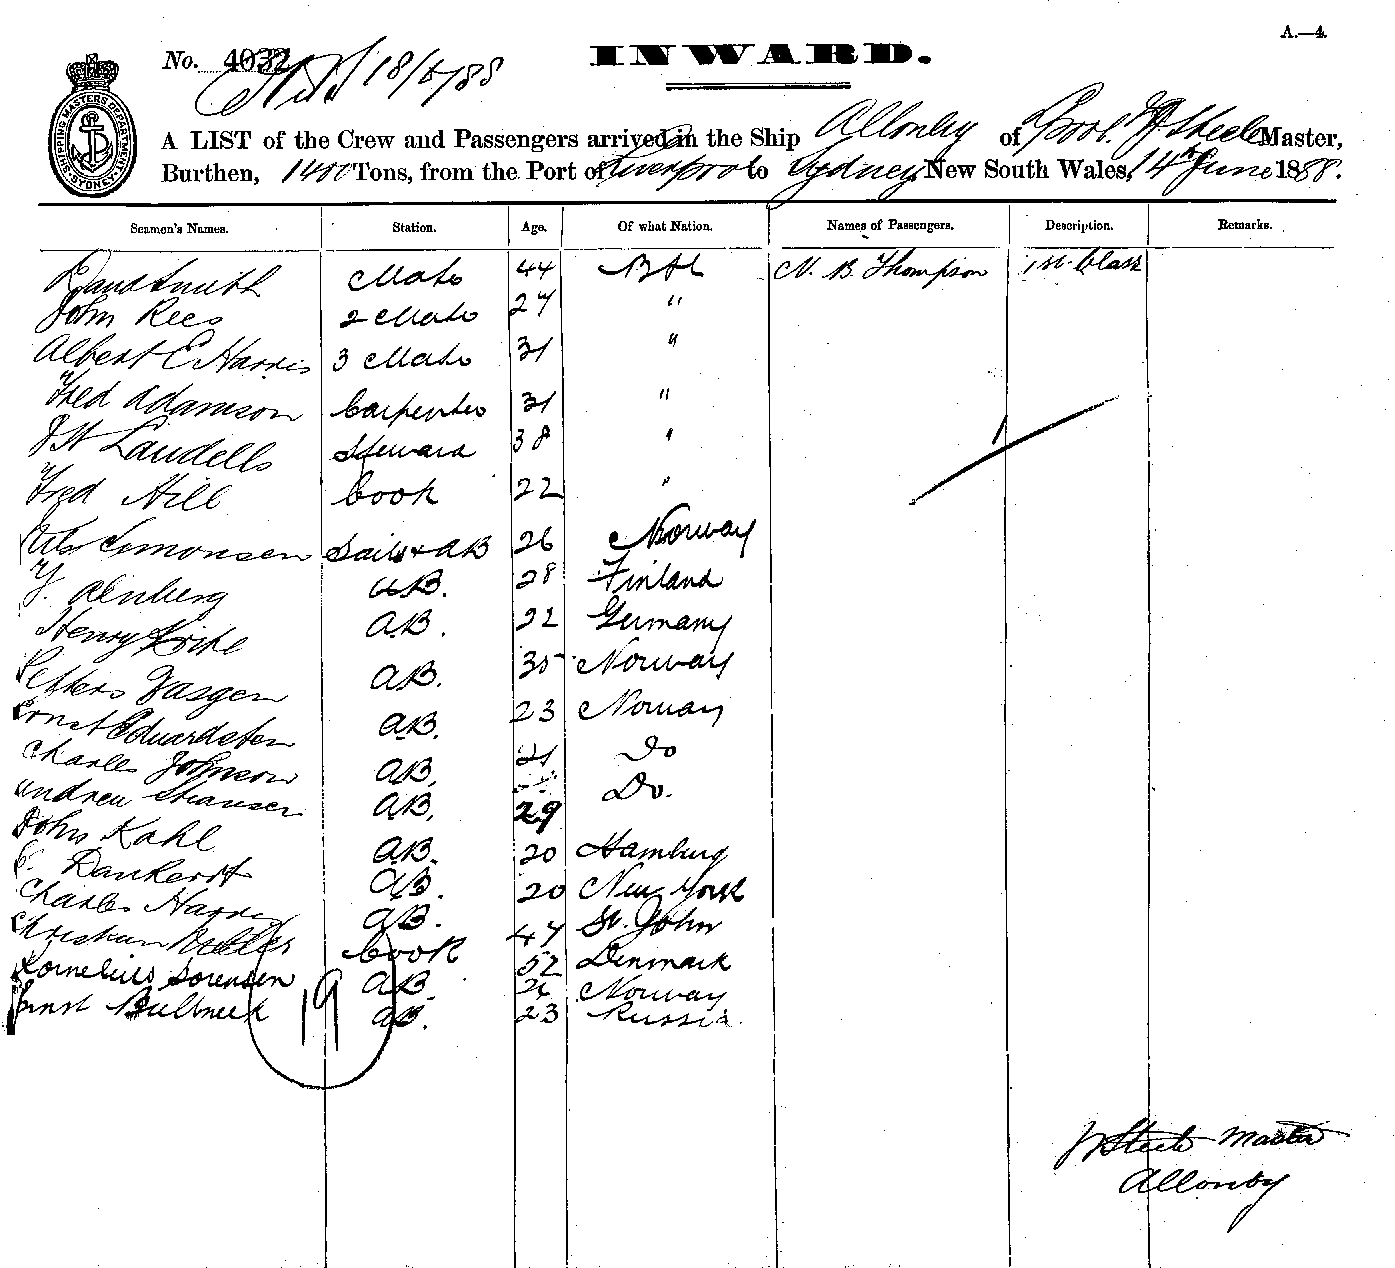 A.—4.
No. 4032
INWARD.
18/6/88
SHIPPING MASTERS DEPARTMENT SYDNEY
A LIST of the Crew and Passengers arrived in the Ship Allonby of Steele Master,
Burthen, 1400 Tons, from the Port of Liverpool to Sydney, New South Wales, 14th June 1888.
Seamen's Names. Station. Age. Of what Nation. Names of Passengers. Description. Remarks.
Smith Mate 44 M. B. Thompson 1st Class
John Rees 2 Mate 27 "
Albert E Harris 3 Mate 31 "
Fred Adamson Carpenter 31 "
Landells Steward 38 "
Fred Hill Cook 22 "
Simonsen Sails & AB 26 Norway
Alenberg AB. 28 Finland
Henry AB. 22 Germany
AB. 35 Norway
Ernst AB. 23 Norway
Charles Johnson AB. 21 Do
Andrew AB. 29 Do.
John Kahl AB. 20 Hamburg
Dankerdt AB. 20 New York
Charles Harris AB. 47 St. John
Christian Miller Cook 52 Denmark
Kornelius Sorensen AB Norway
Ernst AB. 23 Russia
19
Steele Master
Allonby